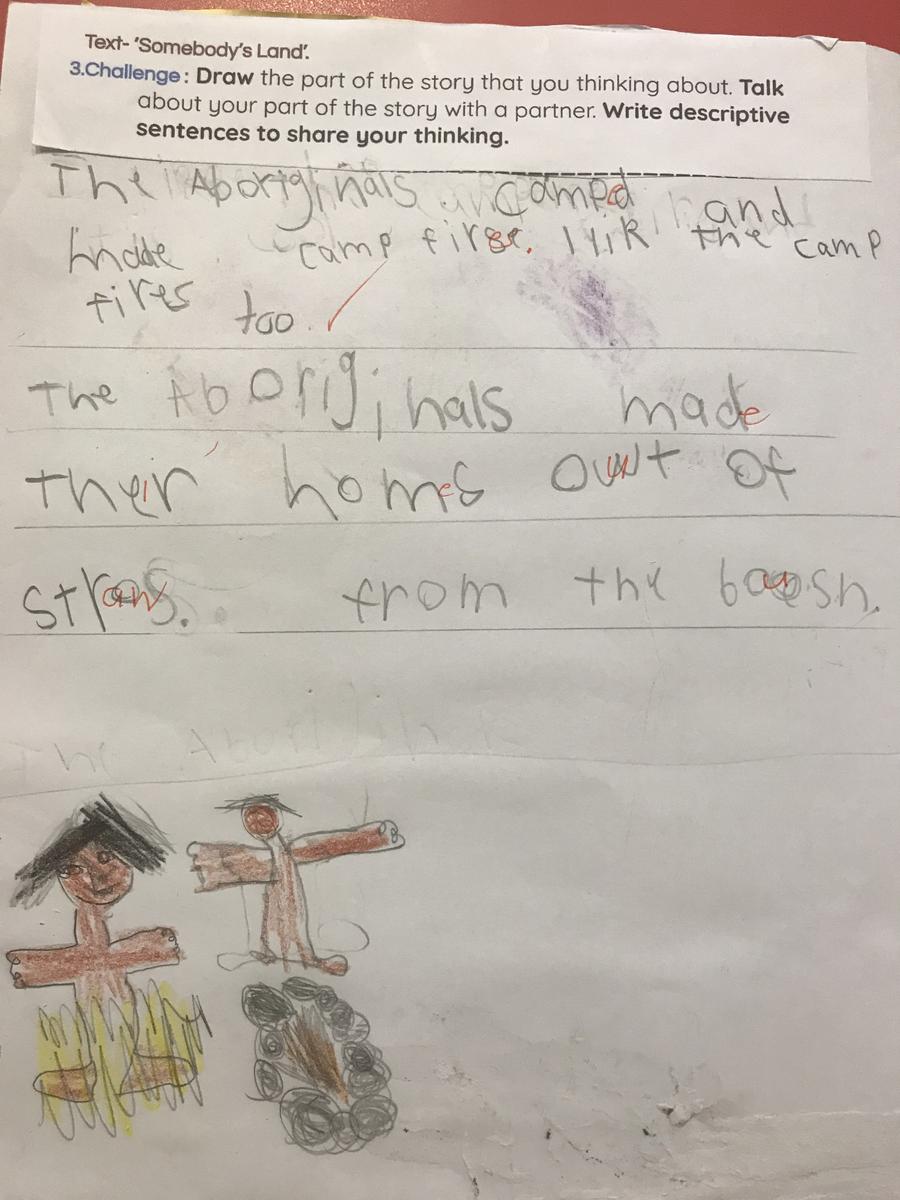 Text- 'Somebody's Land'.
3.Challenge: Draw the part of the story that you thinking about. Talk
about your part of the story with a partner. Write descriptive
sentences to share your thinking.
The Aboriginals camped and
made camp fires. I lik the camp
fires too.
The Aboriginals made
their homes out of
straw. from the bash.
The Abori